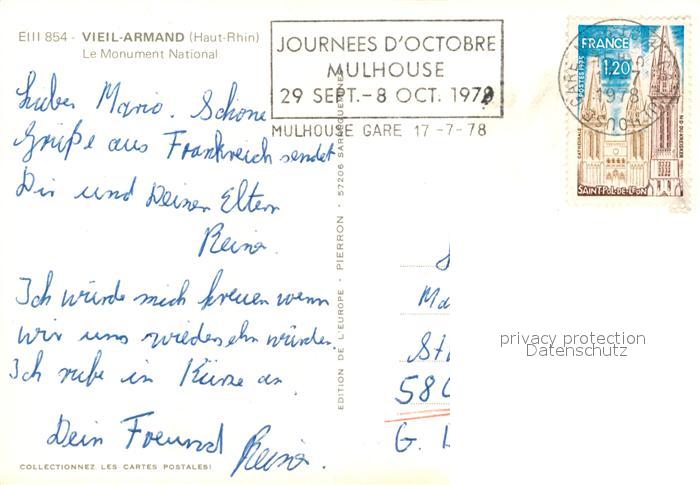 EIII 854 - VIEIL-ARMAND (Haut-Rhin)
Le Monument National
JOURNEES D'OCTOBRE
MULHOUSE
29 SEPT.-8 OCT. 1978
MULHOUSE GARE 17 -7-78
FRANCE
1,20
POSTES 1975
CATHEDRALE
N.D DU KREISKER
SAINT-POL-DE-LEON
GARE
1978
Lieber Mario. Schöne
Grüße aus Frankreich sendet
Dir und Deinen Eltern
Reino.
Ich würde mich freuen wenn
wir uns wiedersehn würden.
Ich rufe in Kürze an.
Dein Freund Reino.
EDITION DE L'EUROPE - PIERRON - 57206 SARREGUEMINES
Ma
St
58
G.
privacy protection
Datenschutz
COLLECTIONNEZ LES CARTES POSTALES!